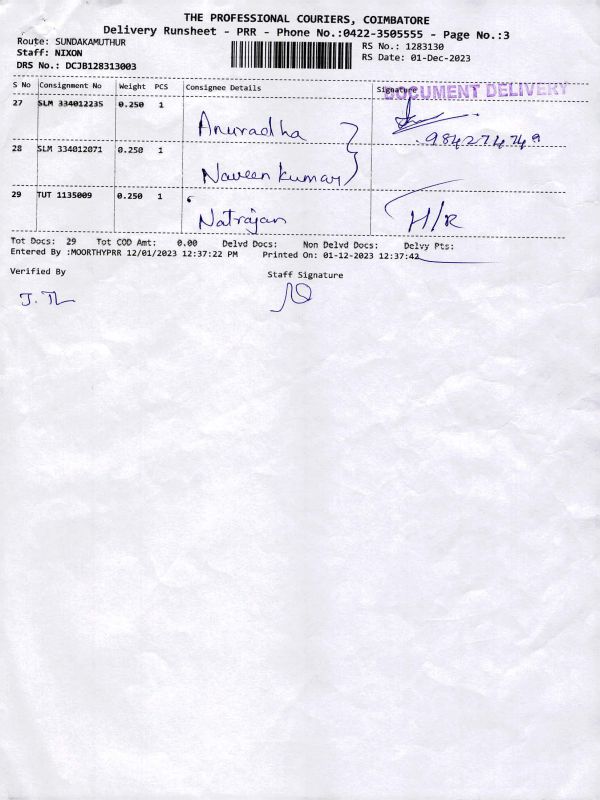 THE PROFESSIONAL COURIERS, COIMBATORE
Delivery Runsheet - PRR - Phone No.:0422-3505555 - Page No.:3
Route: SUNDAKAMUTHUR
Staff: NIXON
DRS No.: DCJB128313003
RS No.: 1283130
RS Date: 01-Dec-2023
S No Consignment No Weight PCS Consignee Details Signature
DOCUMENT DELIVERY
27 SLM 334012235 0.250 1 Anuradha
28 SLM 334012071 0.250 1 Naveen kumar
29 TUT 1135009 0.250 1 Natrajan H/R
Tot Docs: 29 Tot COD Amt: 0.00 Delvd Docs: Non Delvd Docs: Delvy Pts:
Entered By :MOORTHYPRR 12/01/2023 12:37:22 PM Printed On: 01-12-2023 12:37:42
Verified By Staff Signature